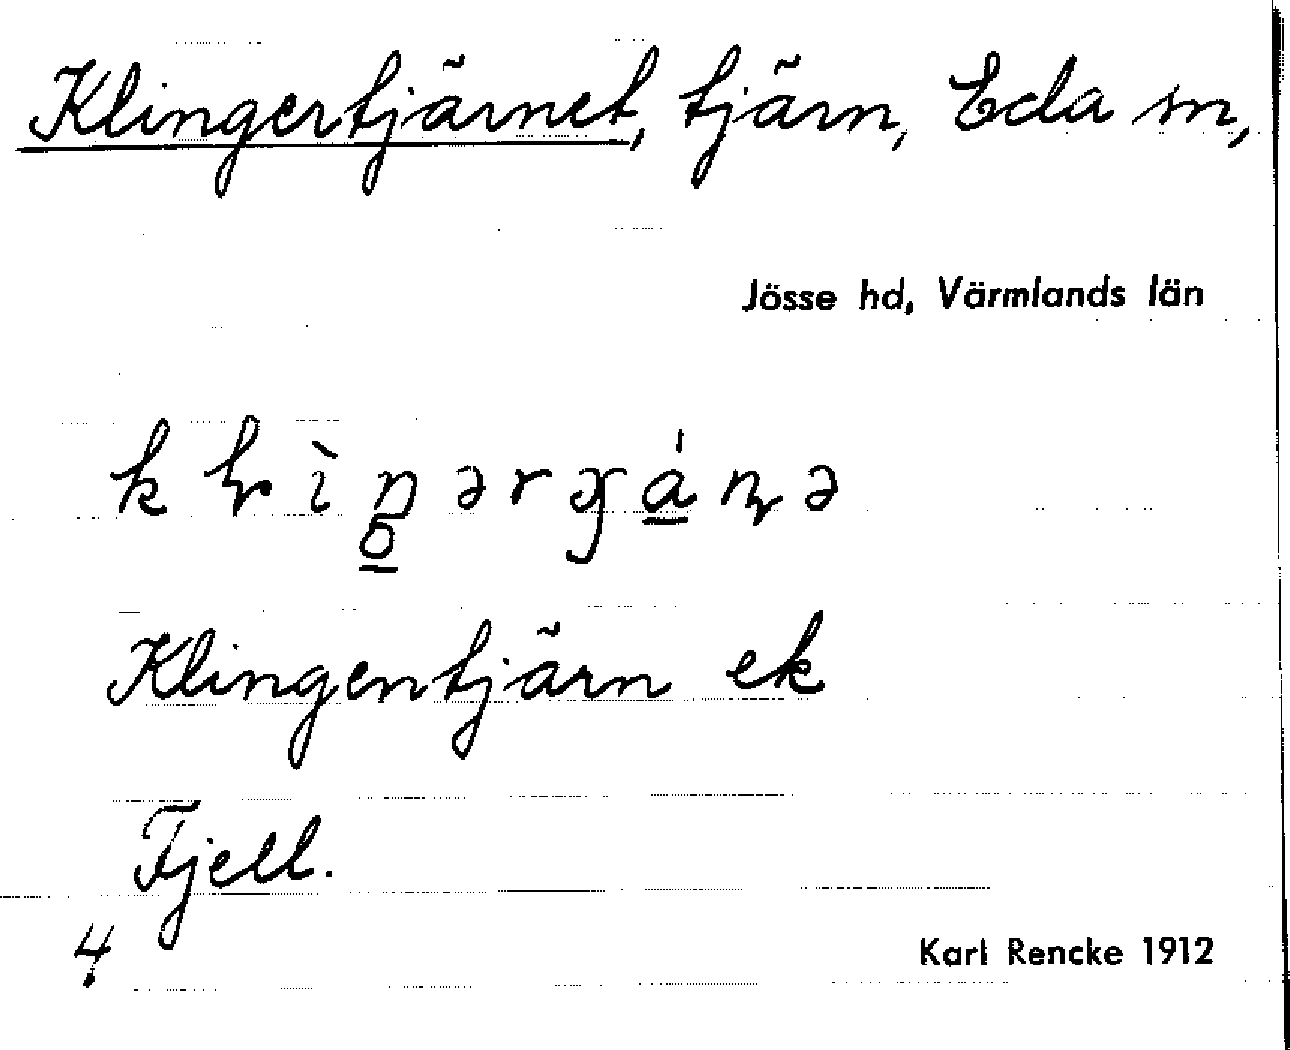 Klingertjärnet, tjärn, Eda sn,
Jösse hd, Värmlands län
Klingentjärn ek
Fjell.
4
Karl Rencke 1912